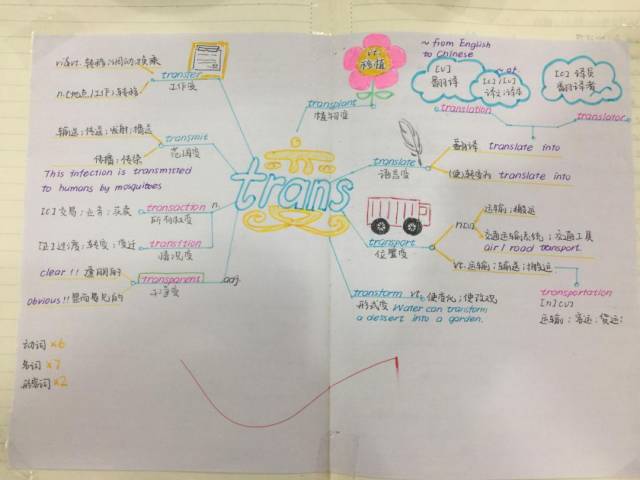 vi&vt. 转移;调动;换乘
transfer
工作变
n.(地点/工作)转移
输送;传送;发射;播送
transmit
范围变
传播;传染
This infection is transmitted
to humans by mosquitoes
transaction n.
[C]交易;业务;买卖
所有权变
transition
情况变
clear!! 透明的
transparent adj.
obvious!! 显而易见的
动词 x6
名词 x7
形容词 x2
trans
vt.
移植
transplant
植物变
~ from English
to Chinese
[U]
翻译
translation
[C] 译员
翻译者
translator
translate
语言变
翻译 translate into
translate into
transport
位置变
运输;搬运
交通运输系统;交通工具
air / road transport
vt.运输;输送;搬运
transportation
[n][U]
运输;客运;货运;
transform vt. 使变化;使改观
形式变 Water can transform
a dessert into a garden.